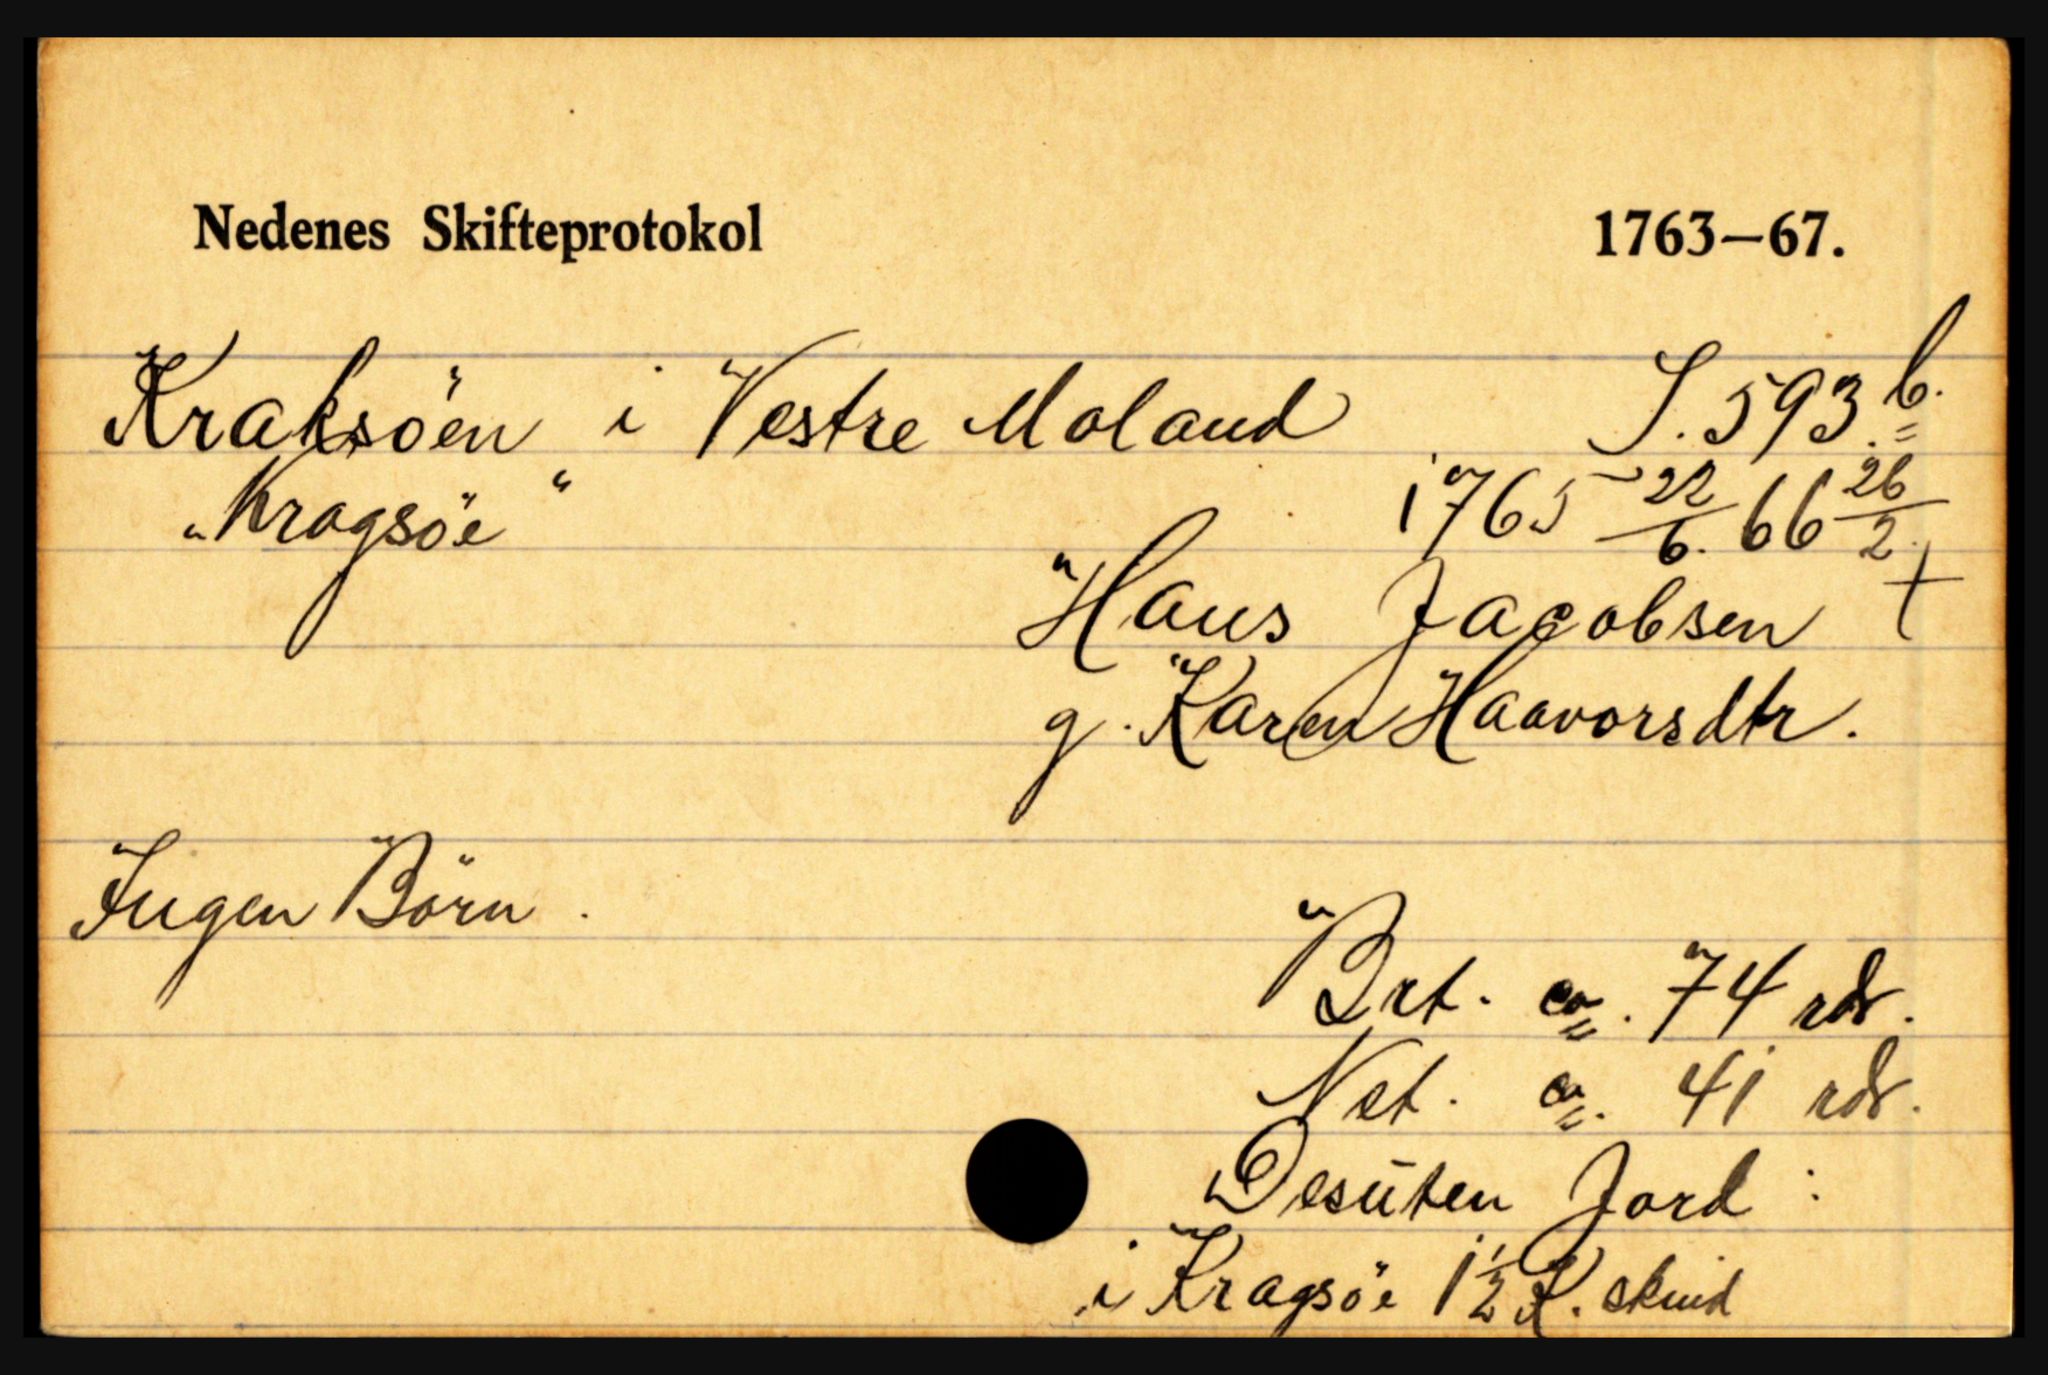 Nedenes Skifteprotokol 1763—67.
Kraksöen i Vestre Moland S. 593.b.
"Kragsöe" 1765 22/6. 66 26/2.
Hans Jacobsen +
g. Karen Haavorsdtr.
Ingen Börn.
Brt. ca. 74 rdr.
Net. ca. 41 rdr.
Desuten Jord:
i Kragsöe 1 1/2 K. skind